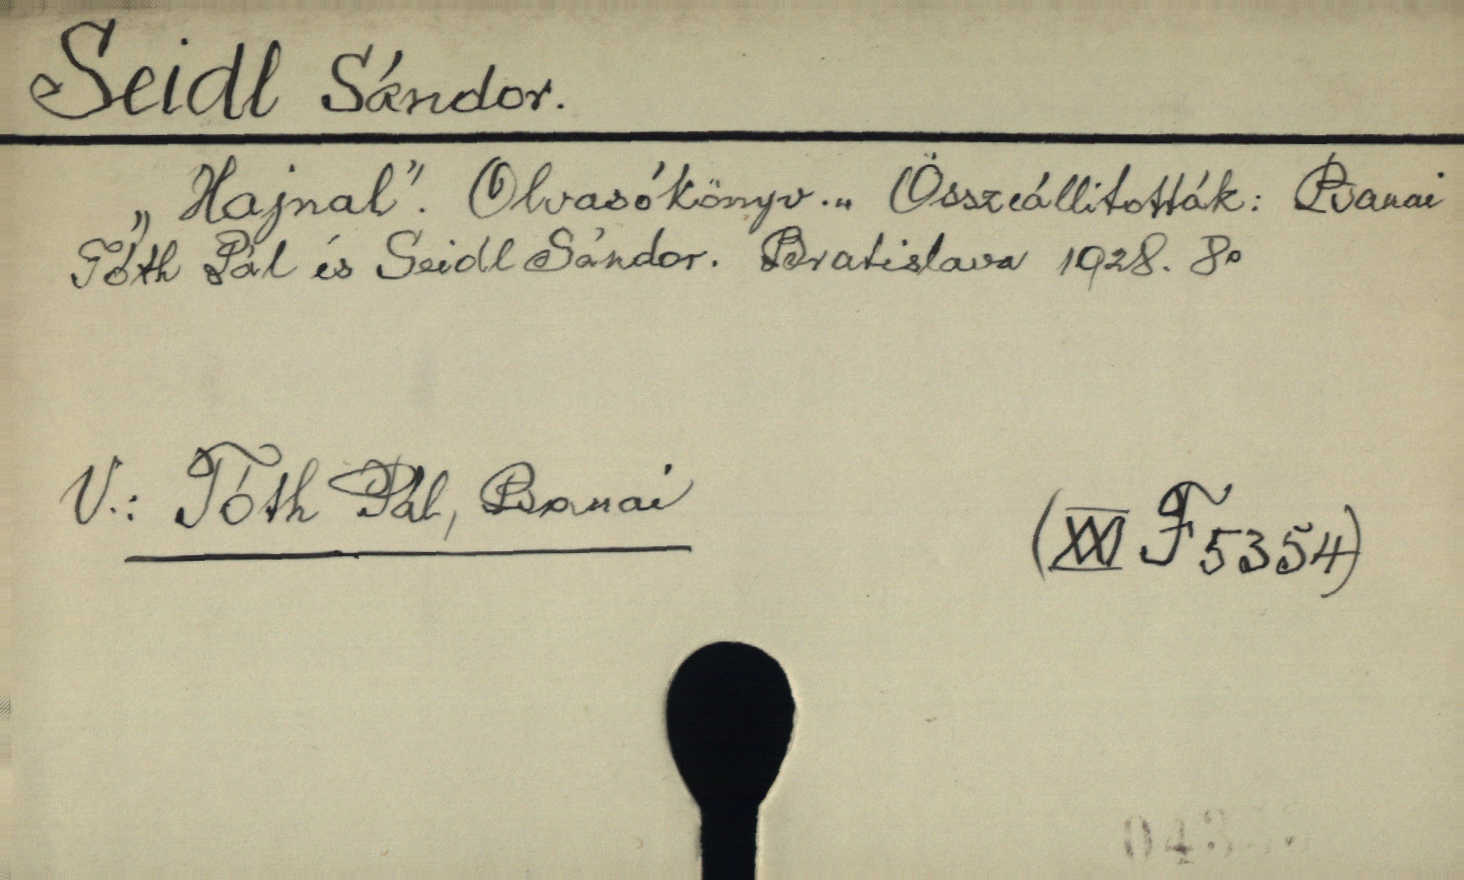 Seidl Sándor.
„Hajnal”. Olvasókönyv..„ Összeállították: Banai
Tóth Pál és Seidl Sándor. Bratislava 1928. 8°
V.: Tóth Pál, Banai
(XXI F 5354)
043